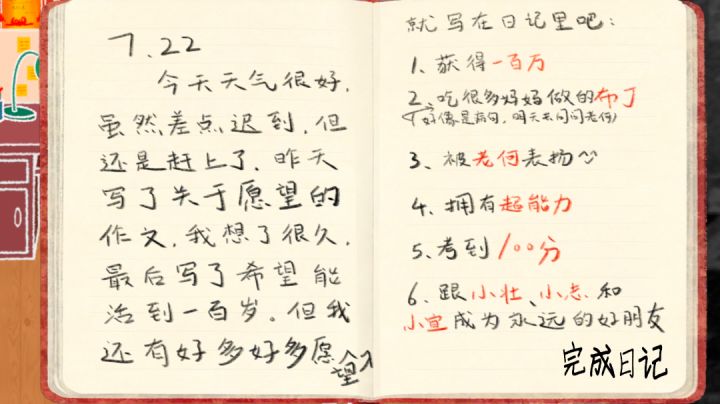 7.22
今天天气很好.
虽然差点迟到,但
还是赶上了.昨天
写了关于愿望的
作文,我想了很久,
最后写了希望能
活到一百岁.但我
还有好多好多愿望
就写在日记里吧:
1、获得一百万
2、吃很多妈妈做的布丁
(好像是病句,明天去问问老何)
3、被老何表扬~
4、拥有超能力
5、考到100分
6、跟小壮、小志和
小宣成为永远的好朋友
完成日记